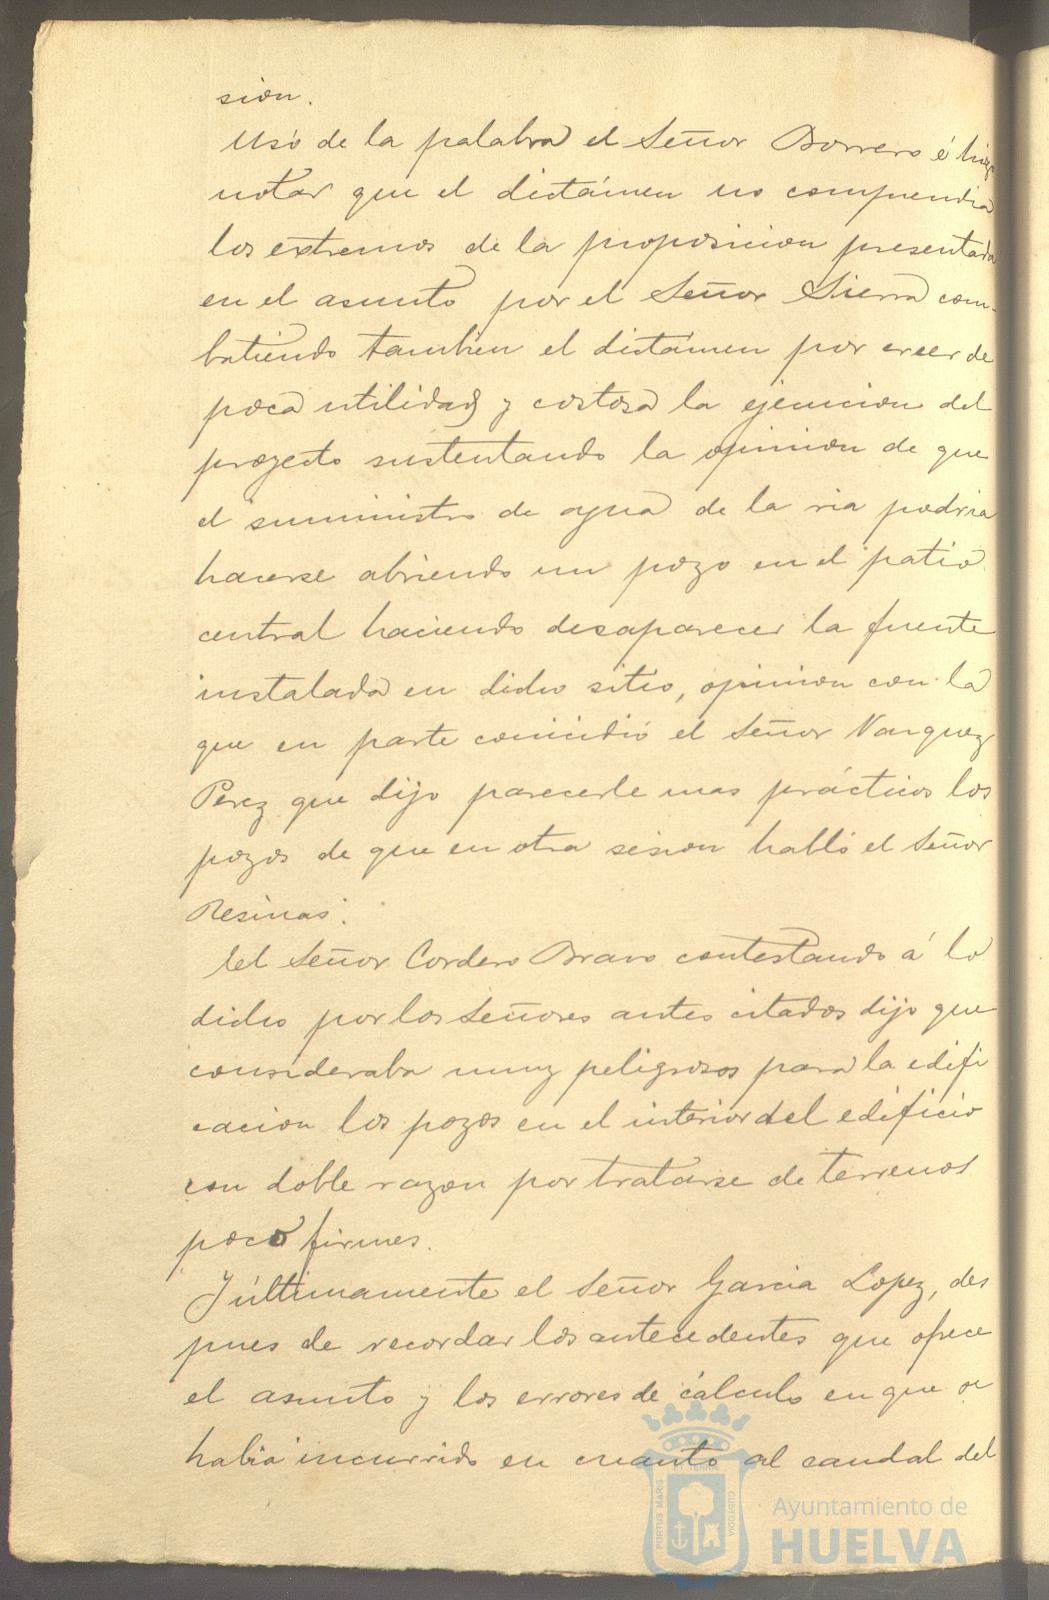 sion.
Usó de la palabra el Señor Borrero é hizo
notar que el dictámen no comprendia
los extremos de la proposicion presentada
en el asunto por el Señor Sierra com-
batiendo tambien el dictámen por creer de
poca utilidad y costosa la ejecucion del
proyecto sustentando la opinion de que
el suministro de agua de la ria podria
hacerse abriendo un pozo en el patio
central haciendo desaparecer la fuente
instalada en dicho sitio, opinion con la
que en parte coincidió el Señor Vazquez
Perez que dijo parecerle mas prácticos los
pozos de que en otra sesion habló el Señor
Resinas.
El Señor Cordero Bravo contestando á lo
dicho por los Señores antes citados dijo que
consideraba muy peligrosos para la edifi
cacion los pozos en el interior del edificio
con doble razon por tratarse de terrenos
poco firmes.
Y últimamente el Señor Garcia Lopez, des
pues de recordar los antecedentes que ofrece
el asunto y los errores de cálculo en que se
habia incurrido en cuanto al caudal del
PORTUS MARIS
CUSTODIA
Ayuntamiento de
HUELVA